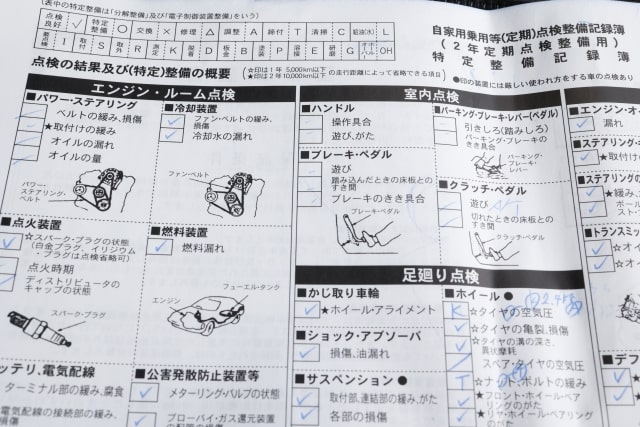 (表中の特定整備は「分解整備」及び「電子制御装置整備」をいう)
点検良好 ✓ 特定整備 ○ 交換 × 修理 △ 調整 A 締付 T 清掃 C 給油(水) L
要点検 I 取付 S 取外 R 測定 K 鍍金 D 板金 B 塗装 P 溶接 W
自家用乗用等(定期)点検整備記録簿
(2年定期点検整備用)
特定整備記録簿
点検の結果及び(特定)整備の概要
☆印は1年 5,000km以下
★印は2年10,000km以下
の走行距離によって省略できる項目
●印の装置には厳しい使われ方をする車の点検あり
エンジン・ルーム点検
■パワー・ステアリング
ベルトの緩み、損傷
★取付けの緩み
オイルの漏れ
オイルの量
パワー・ステアリング・ベルト
■点火装置
☆スパーク・プラグの状態
(白金プラグ、イリジウム・プラグは点検省略可)
点火時期
ディストリビュータのキャップの状態
スパーク・プラグ
ッテリ、電気配線
ターミナル部の緩み、腐食
電気配線の接続部の緩み、
■冷却装置
ファン・ベルトの緩み、損傷
冷却水の漏れ
ファン・ベルト
■燃料装置
燃料漏れ
フューエル・タンク
エンジン
■公害発散防止装置等
メターリング・バルブの状態
ブローバイ・ガス還元装置
室内点検
■ハンドル
操作具合
遊び、がた
■ブレーキ・ペダル
遊び
踏み込んだときの床板とのすき間
ブレーキのきき具合
ブレーキ・ペダル
■パーキング・ブレーキ・レバー(ペダル)
引きしろ(踏みしろ)
パーキング・ブレーキのきき具合
パーキング・ブレーキ・レバー
■クラッチ・ペダル
遊び
A/T
切れたときの床板とのすき間
クラッチ・ペダル
足廻り点検
■かじ取り車輪
★ホイール・アライメント
■ショック・アブソーバ
損傷、油漏れ
■サスペンション ●
取付部、連結部の緩み、がた
各部の損傷
■ホイール ●
K ☆タイヤの空気圧
☆タイヤの亀裂、損傷
☆タイヤの溝の深さ、異状摩耗
スペア・タイヤの空気圧
T
★フロント・ホイール・ベアリングのがた
★リヤ・ホイール・ベアリングのがた
■エンジン・オ
漏れ
■ステアリングの
■トランスミッ
■デフ